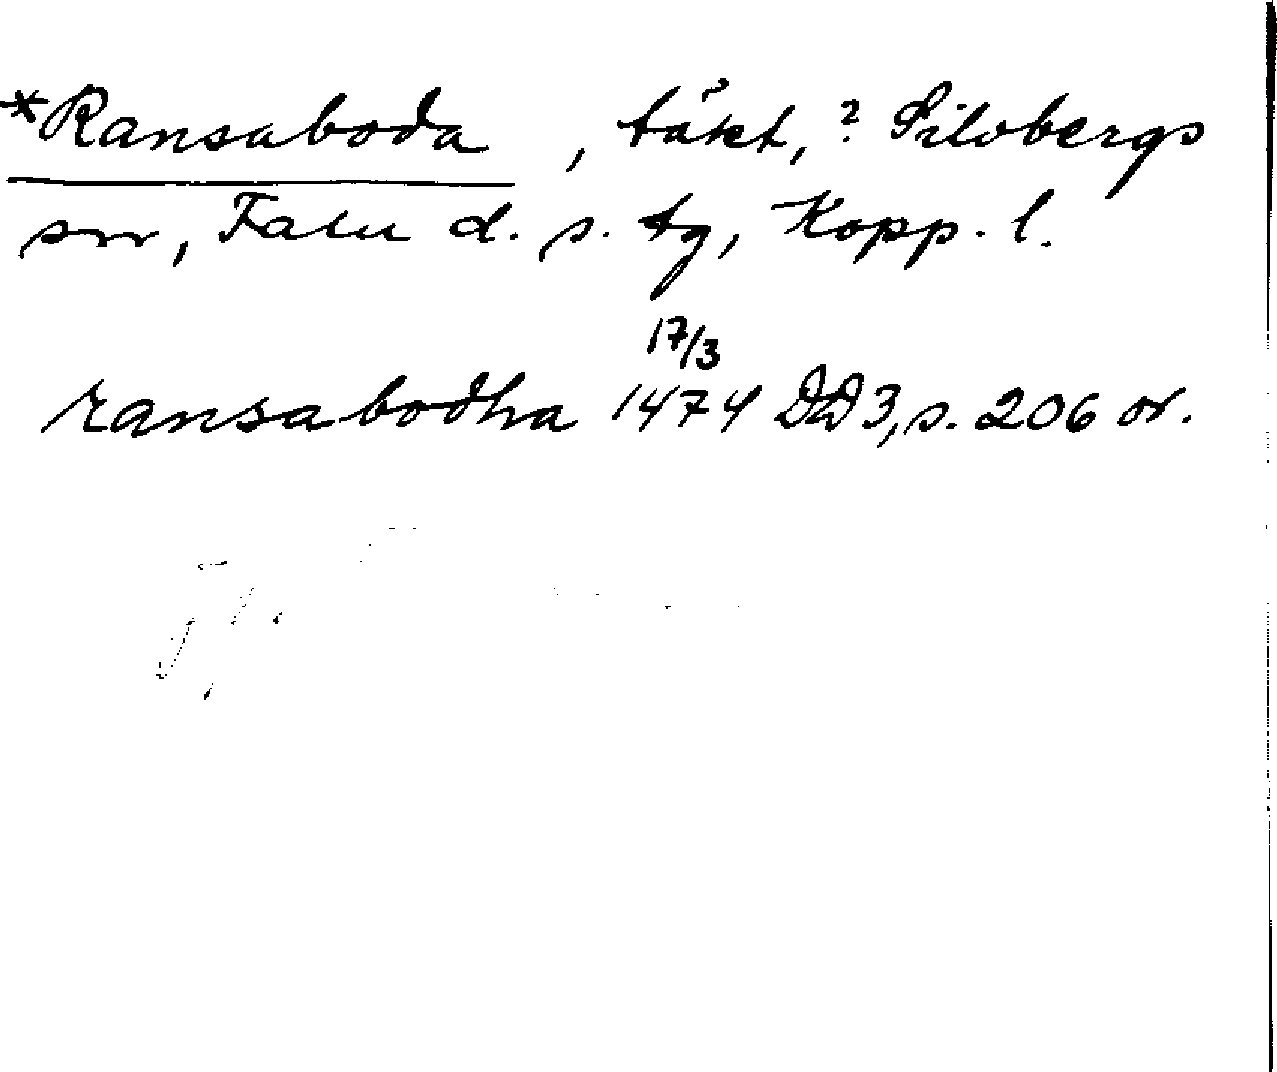 *Ransaboda, täkt, ? Silvbergs
sn, Falu d. s. tg, Kopp. l.
17/3
ransabodha 1474 DD 3, s. 206 or.